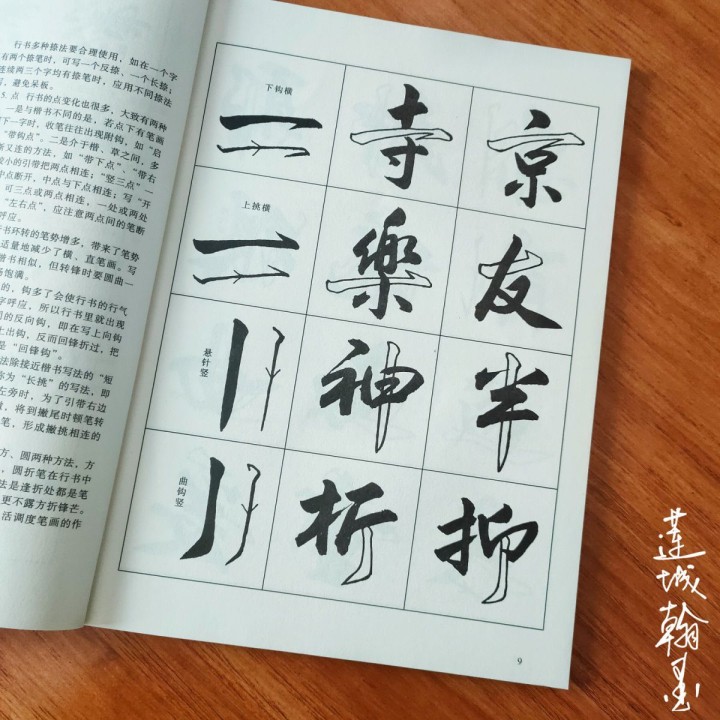 行书多种捺法要合理使用，如在一个字
有两个捺笔时，可写一个反捺、一个长捺；
连续两三个字均有捺笔时，应用不同捺法
写，避免呆板。
5. 点 行书的点变化也很多，大致有两种
一是与楷书不同的是，若点下有笔画
下一字时，收笔往往出现附钩，如“启
“带钩点”。二是介于楷、草之间，多
断又连的方法，如“带下点”、“带右
较小的引带把两点相连；“竖三点”一
中点断开，中点与下点相连；写“开
可三点或两点相连，一处或两处
“左右点”，应注意两点间的笔断
呼应。
行书环转的笔势增多，带来了笔势
适量地减少了横、直笔画。写
楷书相似，但转锋时要圆曲一
满饱满。
的，钩多了会使行书的行气
字呼应，所以行书里就出现
同的反向钩，即在写上向钩
上出钩，反而回锋折过，把
是“回锋钩”。
法除接近楷书写法的“短
称为“长挑”的写法，即
左旁时，为了引带右边
，将到撇尾时顿笔转
笔，形成撇挑相连的
方、圆两种方法，方
，圆折笔在行书中
法是逢折处都是笔
更不露方折锋芒。
活调度笔画的作
下钩横
寺
京
上挑横
樂
友
悬针竖
神
半
曲钩竖
析
抑
9
莲城翰墨